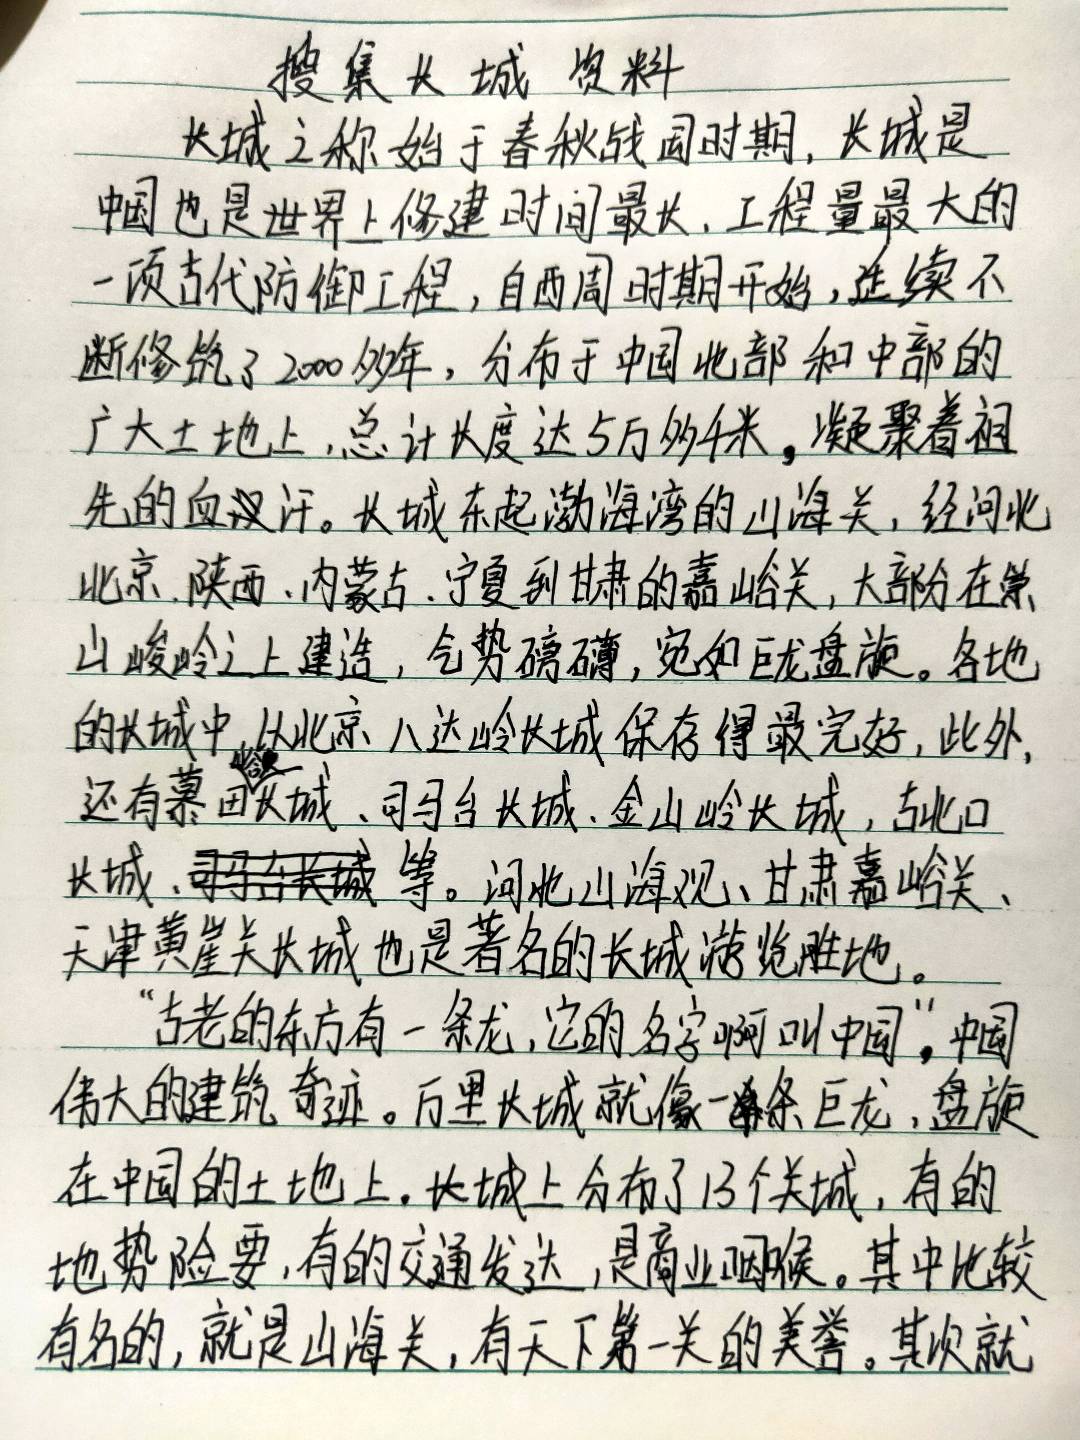 搜集长城资料
长城之称始于春秋战国时期,长城是
中国也是世界上修建时间最长、工程量最大的
一项古代防御工程,自西周时期开始,延续不
断修筑了2000多年,分布于中国北部和中部的
广大土地上,总计长度达5万多千米。凝聚着祖
先的血汉汗。长城东起渤海湾的山海关,经河北
北京、陕西、内蒙古、宁夏到甘肃的嘉峪关,大部分在崇
山峻岭之上建造,气势磅礴,宛如巨龙盘旋。各地
的长城中,以北京八达岭长城保存得最完好,此外,
还有慕田峪长城、司马台长城、金山岭长城,古北口
长城、司马台长城等。河北山海观、甘肃嘉峪关、
天津黄崖关长城也是著名的长城游览胜地。
“古老的东方有一条龙,它的名字啊叫中国”。中国
伟大的建筑奇迹。万里长城就像一条巨龙,盘旋
在中国的土地上。长城上分布了13个关城,有的
地势险要,有的交通发达,是商业咽喉。其中比较
有名的,就是山海关,有天下第一关的美誉。其次就